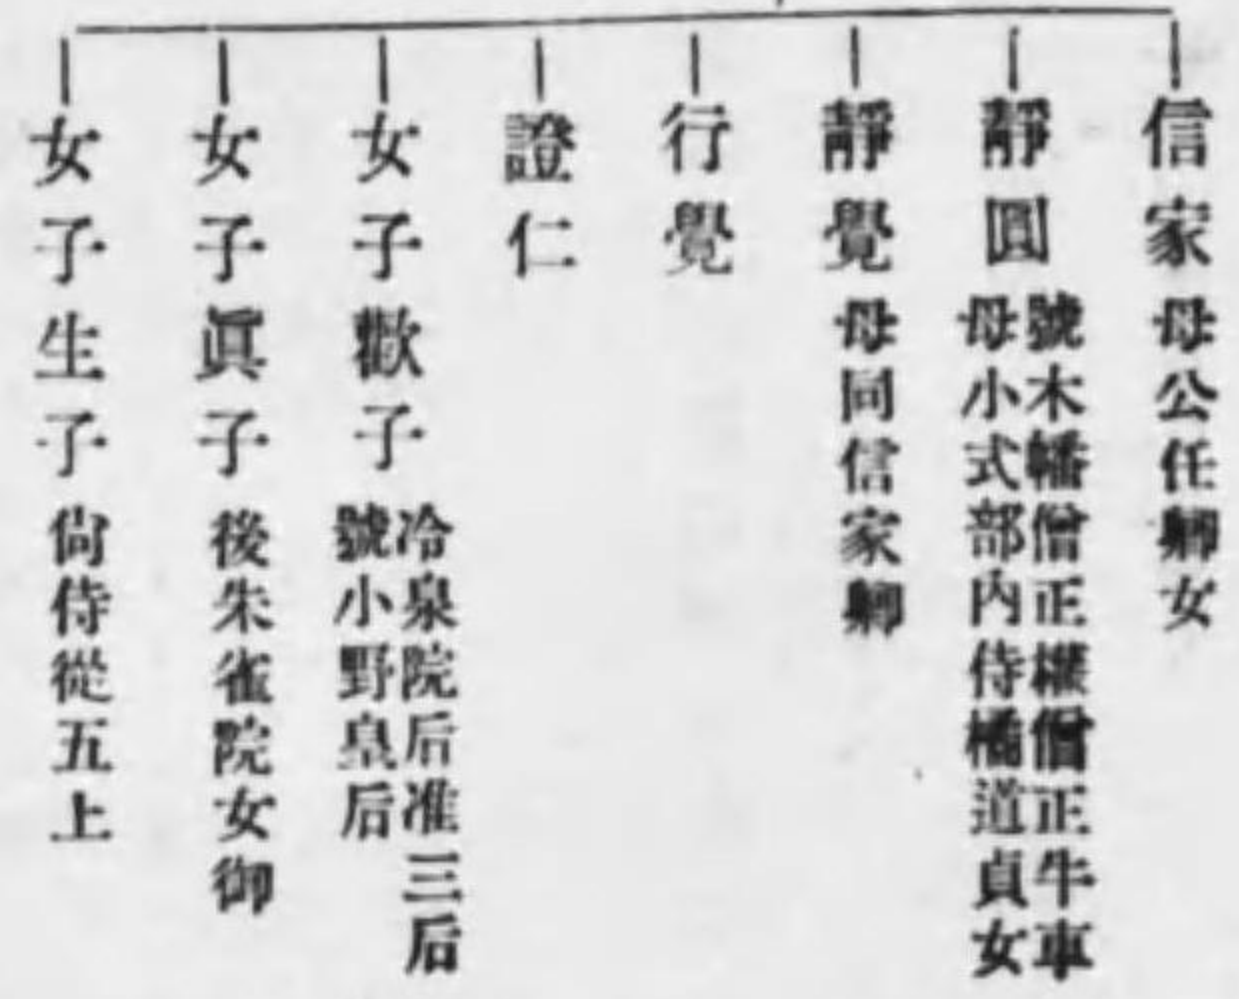 信家 母公任卿女
靜圓 號木幡僧正權僧正牛車
母小式部內侍橘道貞女
靜覺 母同信家卿
行覺
證仁
女子歡子 冷泉院后准三后
號小野皇后
女子眞子 後朱雀院女御
女子生子 尙侍從五上